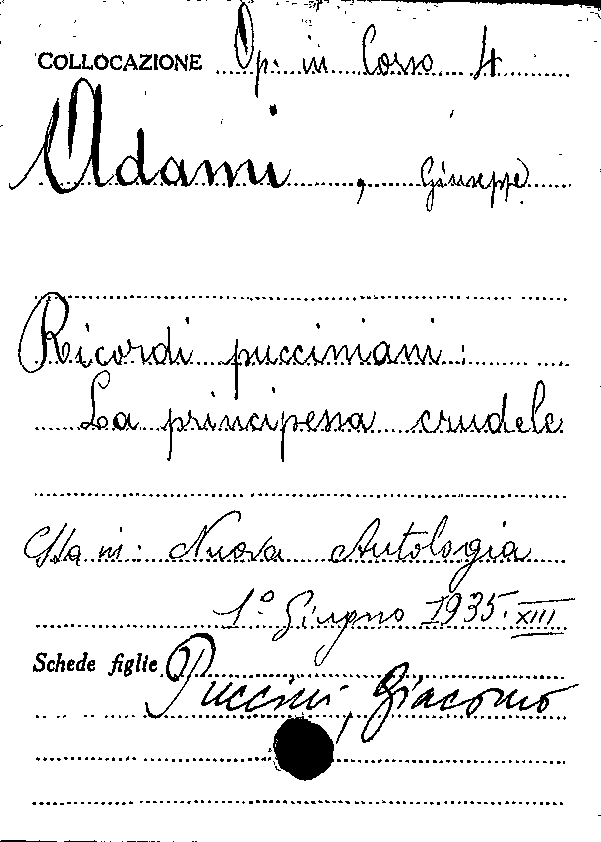 COLLOCAZIONE Op. in Corso 4
Adami, Giuseppe
Ricordi pucciniani:
La principessa crudele
Sta in: Nuova Antologia
1º Giugno 1935. XIII
Schede figlie Puccini, Giacomo